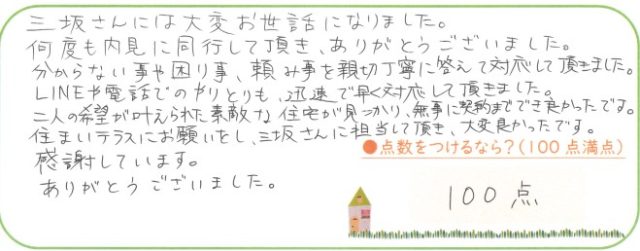 三坂さんには大変お世話になりました。
何度も内見に同行して頂き、ありがとうございました。
分からない事や困り事、頼み事を親切丁寧に答えて対応して頂きました。
LINEや電話でのやりとりも、迅速で早く対応して頂きました。
二人の希望が叶えられた素敵な住宅が見つかり、無事に契約まででき良かったです。
住まいテラスにお願いをし、三坂さんに担当して頂き、大変良かったです。
感謝しています。
ありがとうございました。
●点数をつけるなら?(100点満点)
100点